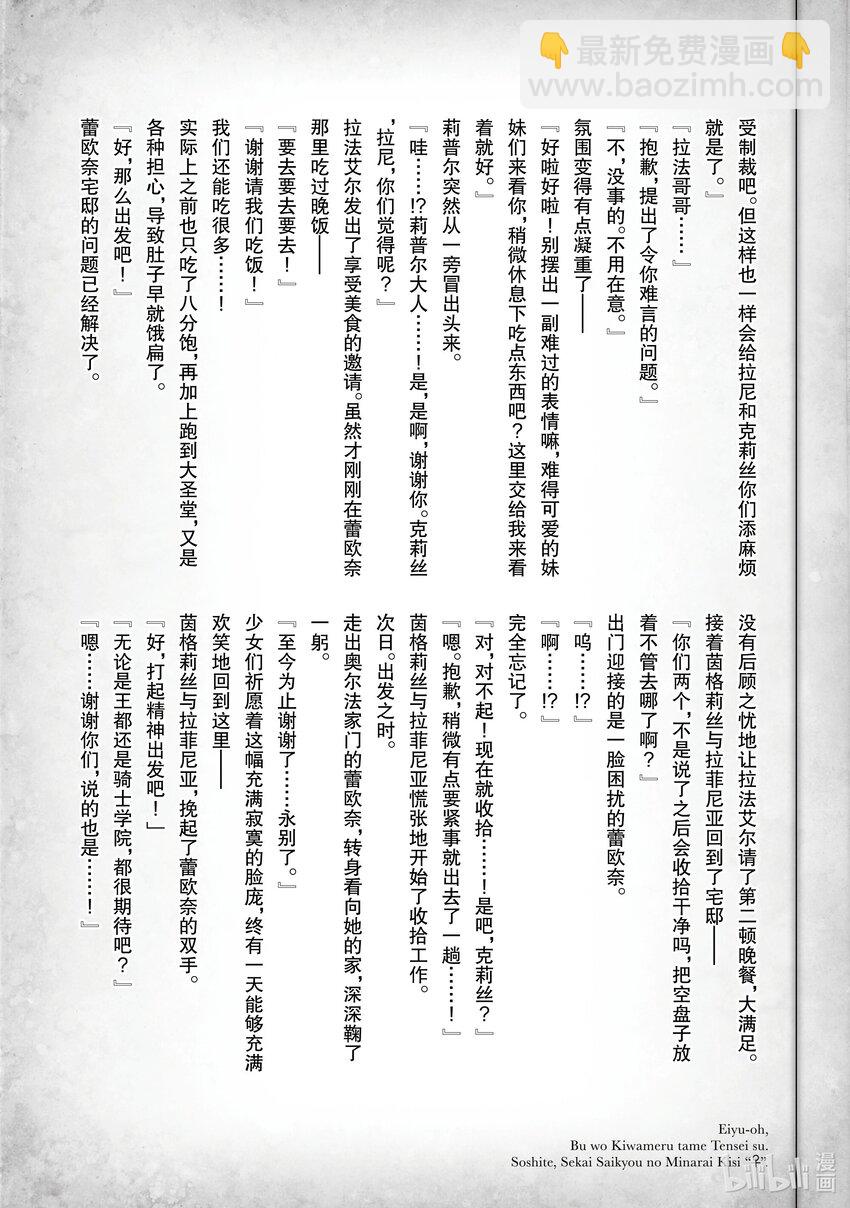 👇最新免费漫画👇
www.baozimh.com
受制裁吧。但这样也一样会给拉尼和克莉丝你们添麻烦
就是了。』
『拉法哥哥……』
『抱歉，提出了令你难言的问题。』
『不，没事的。不用在意。』
氛围变得有点凝重了——
『好啦好啦！别摆出一副难过的表情嘛，难得可爱的妹
妹们来看你，稍微休息下吃点东西吧？这里交给我来看
着就好。』
莉普尔突然从一旁冒出头来。
『哇……!?莉普尔大人……！是，是啊，谢谢你。克莉丝
，拉尼，你们觉得呢？』
拉法艾尔发出了享受美食的邀请。虽然才刚刚在蕾欧奈
那里吃过晚饭——
『要去要去要去！』
『谢谢请我们吃饭！』
我们还能吃很多……！
实际上之前也只吃了八分饱，再加上跑到大圣堂，又是
各种担心，导致肚子早就饿扁了。
『好，那么出发吧！』
蕾欧奈宅邸的问题已经解决了。
没有后顾之忧地让拉法艾尔请了第二顿晚餐，大满足。
接着茵格莉丝与拉菲尼亚回到了宅邸——
『你们两个，不是说了之后会收拾干净吗，把空盘子放
着不管去哪了啊？』
出门迎接的是一脸困扰的蕾欧奈。
『呜……!?』
『啊……!?』
完全忘记了。
『对，对不起！现在就收拾……！是吧，克莉丝？』
『嗯。抱歉，稍微有点要紧事就出去了一趟……！』
茵格莉丝与拉菲尼亚慌张地开始了收拾工作。
次日。出发之时。
走出奥尔法家门的蕾欧奈，转身看向她的家，深深鞠了
一躬。
『至今为止谢谢了……永别了。』
少女们祈愿着这幅充满寂寞的脸庞，终有一天能够充满
欢笑地回到这里——
茵格莉丝与拉菲尼亚，挽起了蕾欧奈的双手。
『好，打起精神出发吧！』
『无论是王都还是骑士学院，都很期待吧？』
『嗯……谢谢你们，说的也是……！』
Eiyu-oh,
Bu wo Kiwameru tame Tensei su.
Soshite, Sekai Saikyou no Minarai Kisi “2”.
bilibili 漫画